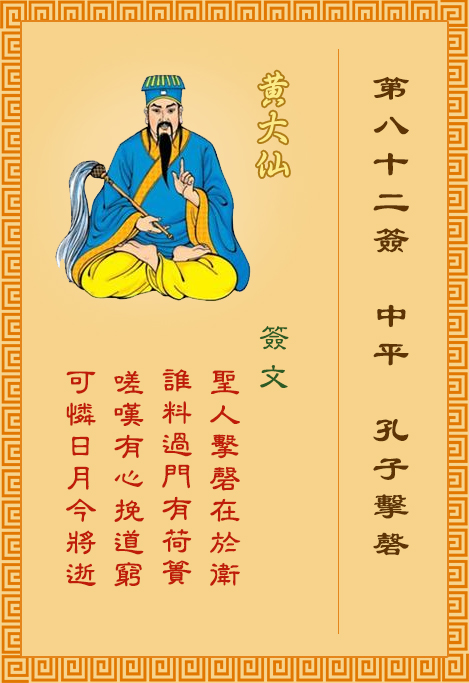 第八十二簽 中平 孔子擊磬
黃大仙
簽文
聖人擊磬在於衛
誰料過門有荷簣
嗟嘆有心挽道窮
可憐日月今將逝